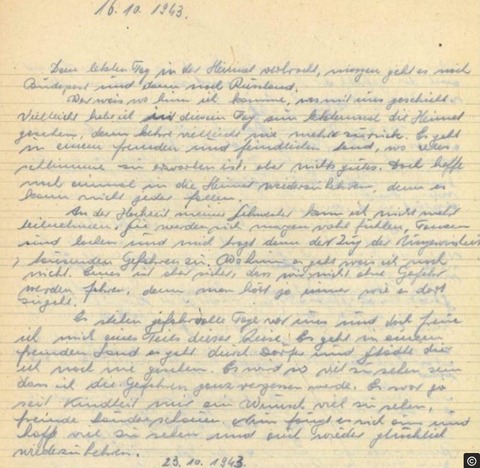 16.10.1943.
Den letzten Tag in der Heimat verbracht, morgen geht es nach
Budapest und dann nach Russland.
Wer weis wo hin ich komme, was mit uns geschieht.
Vielleicht habe ich an diesem Tag zum letztenmal die Heimat
gesehen, dann kehre vielleicht nie mehr zurück. Es geht
in einem fremden und feindlichen Land, wo alles
schlimmes zu erwarten ist, aber nichts gutes. Doch hoffe
noch einmal in die Heimat wiederzukehren, denn es
kann nicht jeder fallen.
An der Hochzeit meiner Schwester kann ich nicht mehr
teilnehmen. Sie werden sich morgen wohl fühlen, Tanzen
und lachen und mich tragt dann der Zug der
kommenden Gefahren zu. Wohin es geht weis ich noch
nicht. Eines ist aber sicher, das wir nicht ohne Gefahr
werden fahren, denn man hört ja immer wie es dort
zugeht.
Es stehen gefahrvolle Tage vor uns und doch freue
ich mich eines Teils dieser Reise. Es geht in einem
fremden Land es geht durch Dörfer und Städte die
ich noch nie gesehen. Es wird so viel zu sehen sein
dass ich die Gefahren ganz vergessen werde. Es war ja
seit Kindheit mir ein Wunsch viel zu sehen,
fremde Länder schauen, nun und
hoffe viel zu sehen und auch wieder glücklich
wiederzukehren.
23.10.1943.
©